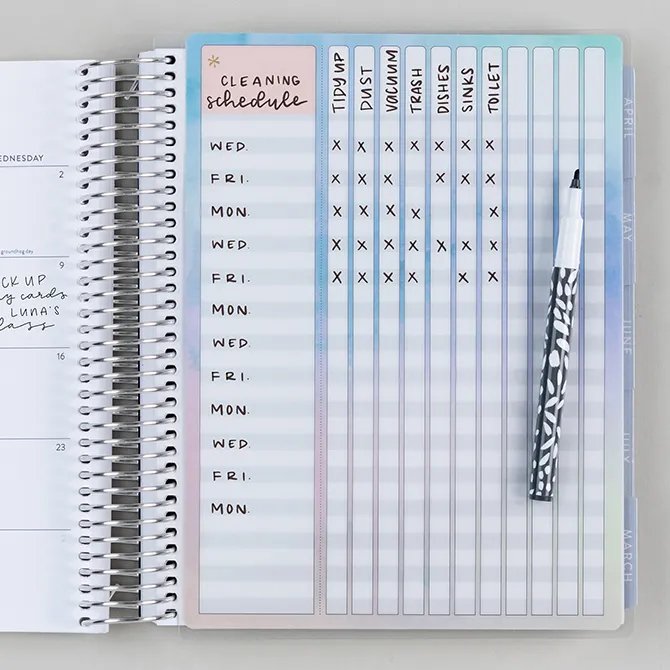 WEDNESDAY
2
groundhog day
9
CK UP
y cards
LUNA'S
lass
16
23
CLEANING
schedule
TIDY UP DUST VACUUM TRASH DISHES SINKS TOILET
WED. X X X X X X X
FRI. X X X X X X
MON. X X X X X
WED. X X X X X X X
FRI. X X X X X X
MON.
WED.
FRI.
MON.
WED.
FRI.
MON.
APRIL
MAY
JUNE
JULY
MARCH